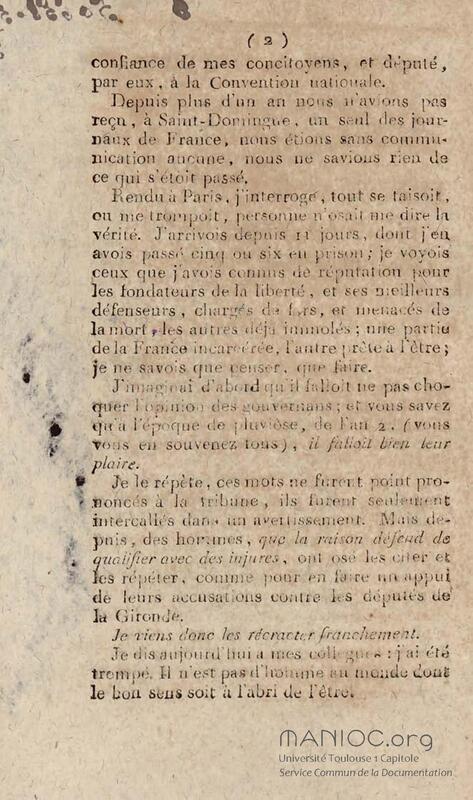 ( 2 )
confiance de mes concitoyens, et député,
par eux, à la Convention nationale.
Depuis plus d'un an nous n'avions pas
reçu, à Saint-Domingue, un seul des jour-
naux de France, nous étions sans commu-
nication aucune, nous ne savions rien de
ce qui s'étoit passé.
Rendu à Paris, j'interroge, tout se taisoit,
ou me trompoit, personne n'osait me dire la
vérité. J'arrivois depuis 11 jours, dont j'en
avois passé cinq ou six en prison ; je voyois
ceux que j'avois connus de réputation pour
les fondateurs de la liberté, et ses meilleurs
défenseurs, chargés de fers, et menacés de
la mort, les autres déjà immolés ; une partie
de la France incarcérée, l'autre prête à l'être ;
je ne savois que penser, que faire.
J'imaginai d'abord qu'il falloit ne pas cho-
quer l'opinion des gouvernans ; et vous savez
qu'à l'époque de pluviôse, de l'an 2, (vous
vous en souvenez tous), il falloit bien leur
plaire.
Je le répète, ces mots ne furent point pro-
noncés à la tribune, ils furent seulement
intercallés dans un avertissement. Mais de-
puis, des hommes, que la raison défend de
qualifier avec des injures, ont osé les citer et
les répéter, comme pour en faire un appui
de leurs accusations contre les députés de
la Gironde.
Je viens donc les rétracter franchement.
Je dis aujourd'hui à mes collègues : j'ai été
trompé. Il n'est pas d'homme au monde dont
le bon sens soit à l'abri de l'être.
MANIOC.org
Université Toulouse 1 Capitole
Service Commun de la Documentation